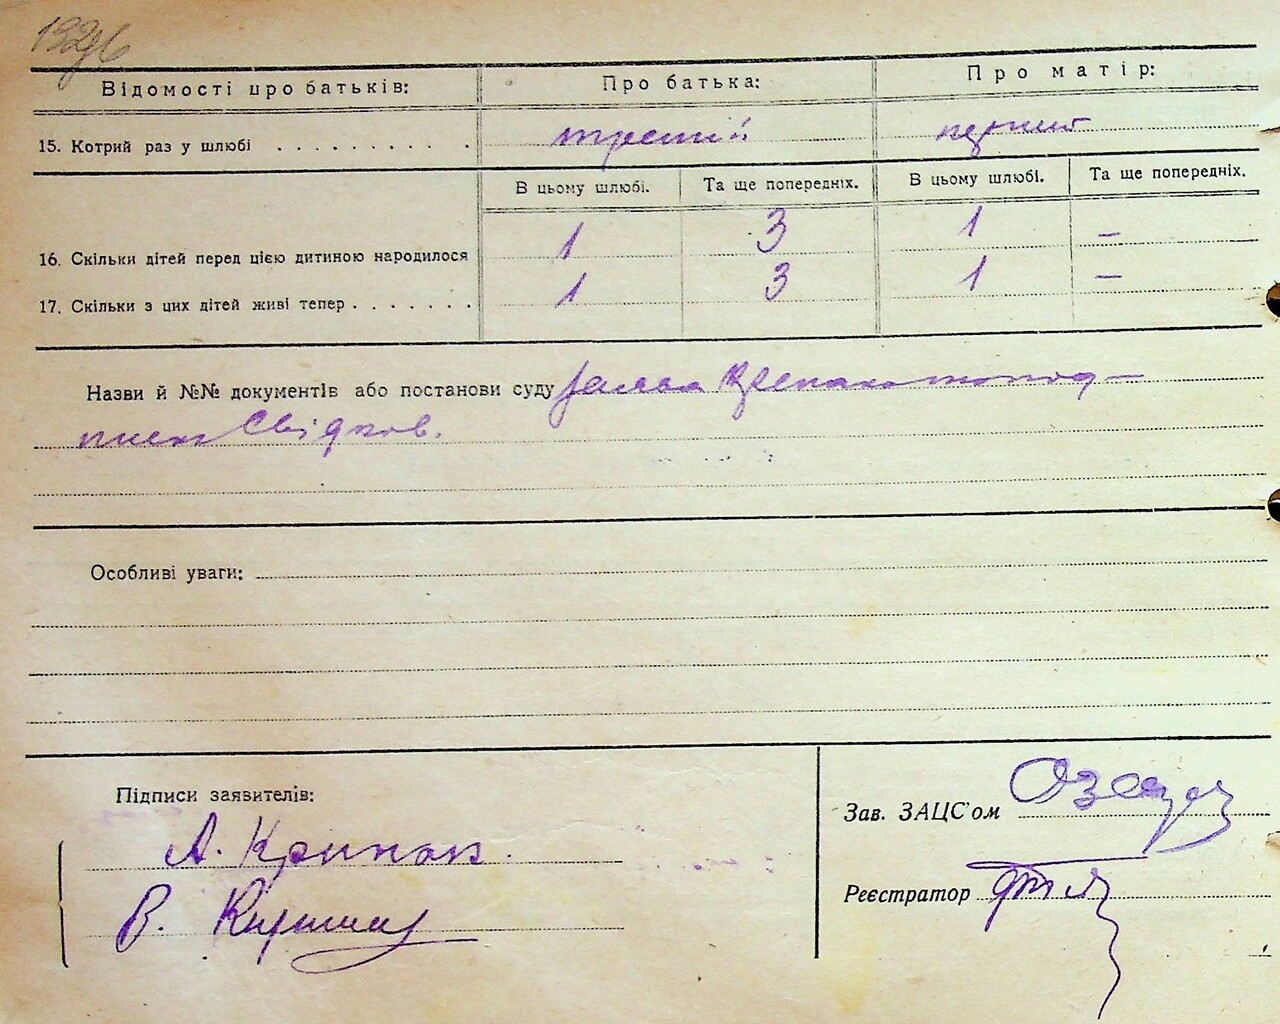 1926
Відомості про батьків: Про батька: Про матір:
15. Котрий раз у шлюбі . . . . . . . . . . третій перший
В цьому шлюбі. Та ще попередніх. В цьому шлюбі. Та ще попередніх.
16. Скільки дітей перед цією дитиною народилося 1 3 1 —
17. Скільки з цих дітей живі тепер . . . . . . . 1 3 1 —
Назви й №№ документів або постанови суду
свідков.
Особливі уваги:
Підписи заявителів:
Зав. ЗАЦС'ом
А.
Реєстратор
В.